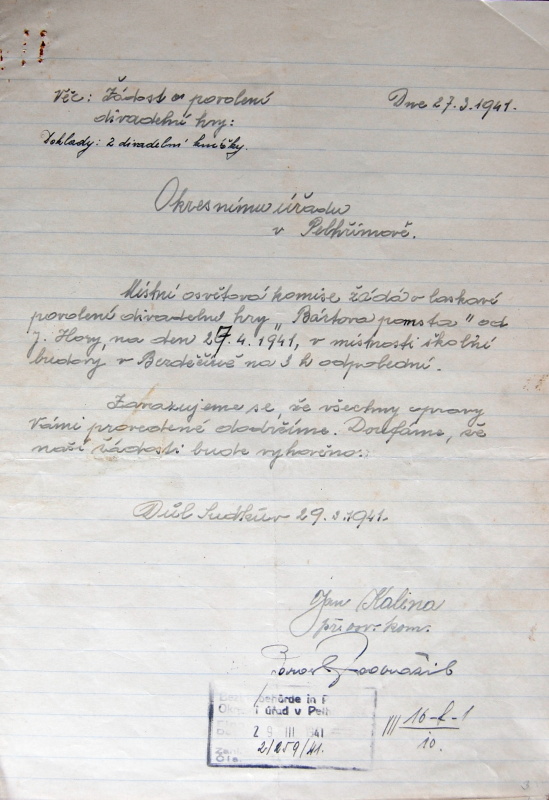 Věc: Žádost o povolení
Dne 27.3.1941.
divadelní hry:
Doklady: 2 divadelní knížky.
Okresnímu úřadu
v Pelhřimově.
Místní osvětová komise žádá o laskavé
povolení divadelní hry „Bártova pomsta" od
J. Hory, na den 27.4.1941, v místnosti školní
budovy v na 3 h odpolední.
Zavazujeme se, že všechny úpravy
Vámi provedené dodržíme. Doufáme, že
naší žádosti bude vyhověno.
Důl 29.3.1941.
Jan Kalina
př. osv. kom.
behörde in P
úřad v Pelh
29 III 1941
2/259/41.
III 16-f-1
10.
3